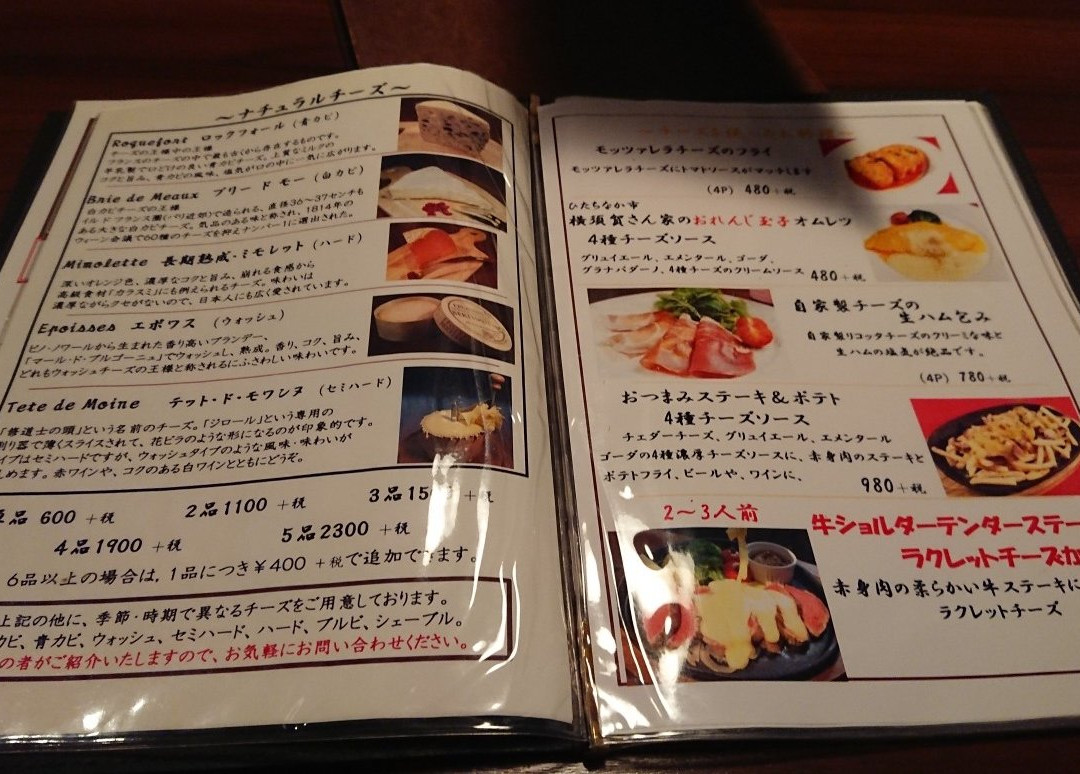 ～ナチュラルチーズ～
Roquefort ロックフォール (青カビ)
チーズの王様中の王様
フランスのチーズの中で最も古くから存在するものです。
羊乳製で口どけの良い青カビチーズ。上質なミルクの
コクと旨み、青カビの風味、塩気が口の中に一気に広がります。
Brie de Meaux ブリー ド モー (白カビ)
白カビチーズの王様
イル ド フランス圏(パリ近郊)で造られる、直径36～37センチも
ある大きな白カビチーズ。気品のある味と称され、1814年の
ウィーン会議で60種のチーズを抑えナンバー1に選出された。
Mimolette 長期熟成・ミモレット (ハード)
深いオレンジ色、濃厚なコクと旨み、崩れる食感から
高級食材「カラスミ」にも例えられるチーズ。味わいは
濃厚ながらクセがないので、日本人にも広く愛されています。
Epoisses エポワス (ウォッシュ)
ピノ・ノワールから生まれた香り高いブランデー、
「マール・ド・ブルゴーニュ」でウォッシュし、熟成。香り、コク、旨み、
どれもウォッシュチーズの王様と称されるにふさわしい味わいです。
Tete de Moine テット・ド・モワンヌ (セミハード)
「修道士の頭」という名前のチーズ。「ジロール」という専用の
削り器で薄くスライスされて、花ビラのような形になるのが印象的です。
イプはセミハードですが、ウォッシュタイプのような風味・味わいが
しめます。赤ワインや、コクのある白ワインとともにどうぞ。
品 600 +税 2品1100 +税 3品15 +税
4品1900 +税 5品2300 +税
6品以上の場合は、1品につき¥400 +税で追加できます。
上記の他に、季節・時期で異なるチーズをご用意しております。
カビ、青カビ、ウォッシュ、セミハード、ハード、ブルビ、シェーブル。
の者がご紹介いたしますので、お気軽にお問い合わせください。
モッツァレラチーズのフライ
モッツァレラチーズにトマトソースがマッチします
(4P) 480+税
ひたちなか市
横須賀さん家のおれんじ玉子オムレツ
4種チーズソース
グリュイエール、エメンタール、ゴーダ、
グラナパダーノ、4種チーズのクリームソース 480+税
自家製チーズの
生ハム包み
自家製リコッタチーズのクリーミな味と
生ハムの塩気が絶品です。
(4P) 780+税
おつまみステーキ&ポテト
4種チーズソース
チェダーチーズ、グリュイエール、エメンタール
ゴーダの4種濃厚チーズソースに、赤身肉のステーキと
ポテトフライ、ビールや、ワインに、
980+税
2～3人前
牛ショルダーテンダーステー
ラクレットチーズか
赤身肉の柔らかい牛ステーキに
ラクレットチーズ